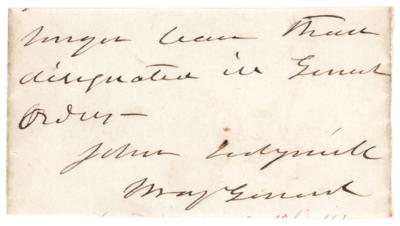 longer leave than
designated in General
Orders—
John Sedgwick
Maj General